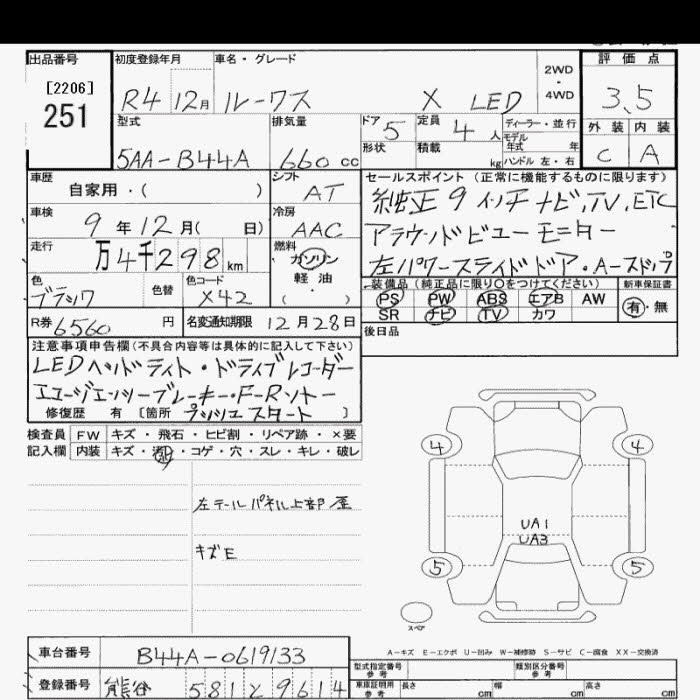 出品番号 初度登録年月 車名・グレード 2WD・4WD 評価点
[2206]
251 R4 12月 ルークス X LED 3.5
型式 排気量 ドア 5 定員 4 人 ディーラー・並行 外装 内装
モデル年式 年
5AA-B44A 660 cc 形状 積載 kg ハンドル 左・右 C A
車歴 シフト セールスポイント (正常に機能するものに限ります)
自家用・( ) AT 純正9インチナビ,TV,ETC
車検 冷房
9年12月( 日) AAC アラウンドビューモニター
走行 燃料
万4千298km ガソリン 左パワースライドドア・Aーストップ
軽油
・( )
色 色替 色コード 装備品(純正品に限り○をつけてください) 新車保証書
ブラック X42 PS PW ABS エアB AW 有・無
SR ナビ TV カワ
R券 6560 円 名変通知期限 12月28日 後日品
注意事項申告欄(不具合内容等は具体的に記入して下さい)
LEDヘッドライト・ドライブレコーダー
エマージェンシーブレーキ・F-Rソナー
修復歴 有 [箇所 プッシュスタート ]
検査員 FW キズ・飛石・ヒビ割・リペア跡・×要
記入欄 内装 キズ・汚れ・コゲ・穴・スレ・キレ・破レ
4 4
左テールパネル上部歪
UA1
UA3
キズE
5 5
スペア
A-キズ E-エクボ U-凹み W-補修跡 S-サビ C-腐食 XX-交換済
車台番号 B44A-0619133 型式指定番号 参考 類別区分番号 参考
登録番号 熊谷 581 と 9614 車庫証明用 参考 長さ cm 幅 cm 高さ cm